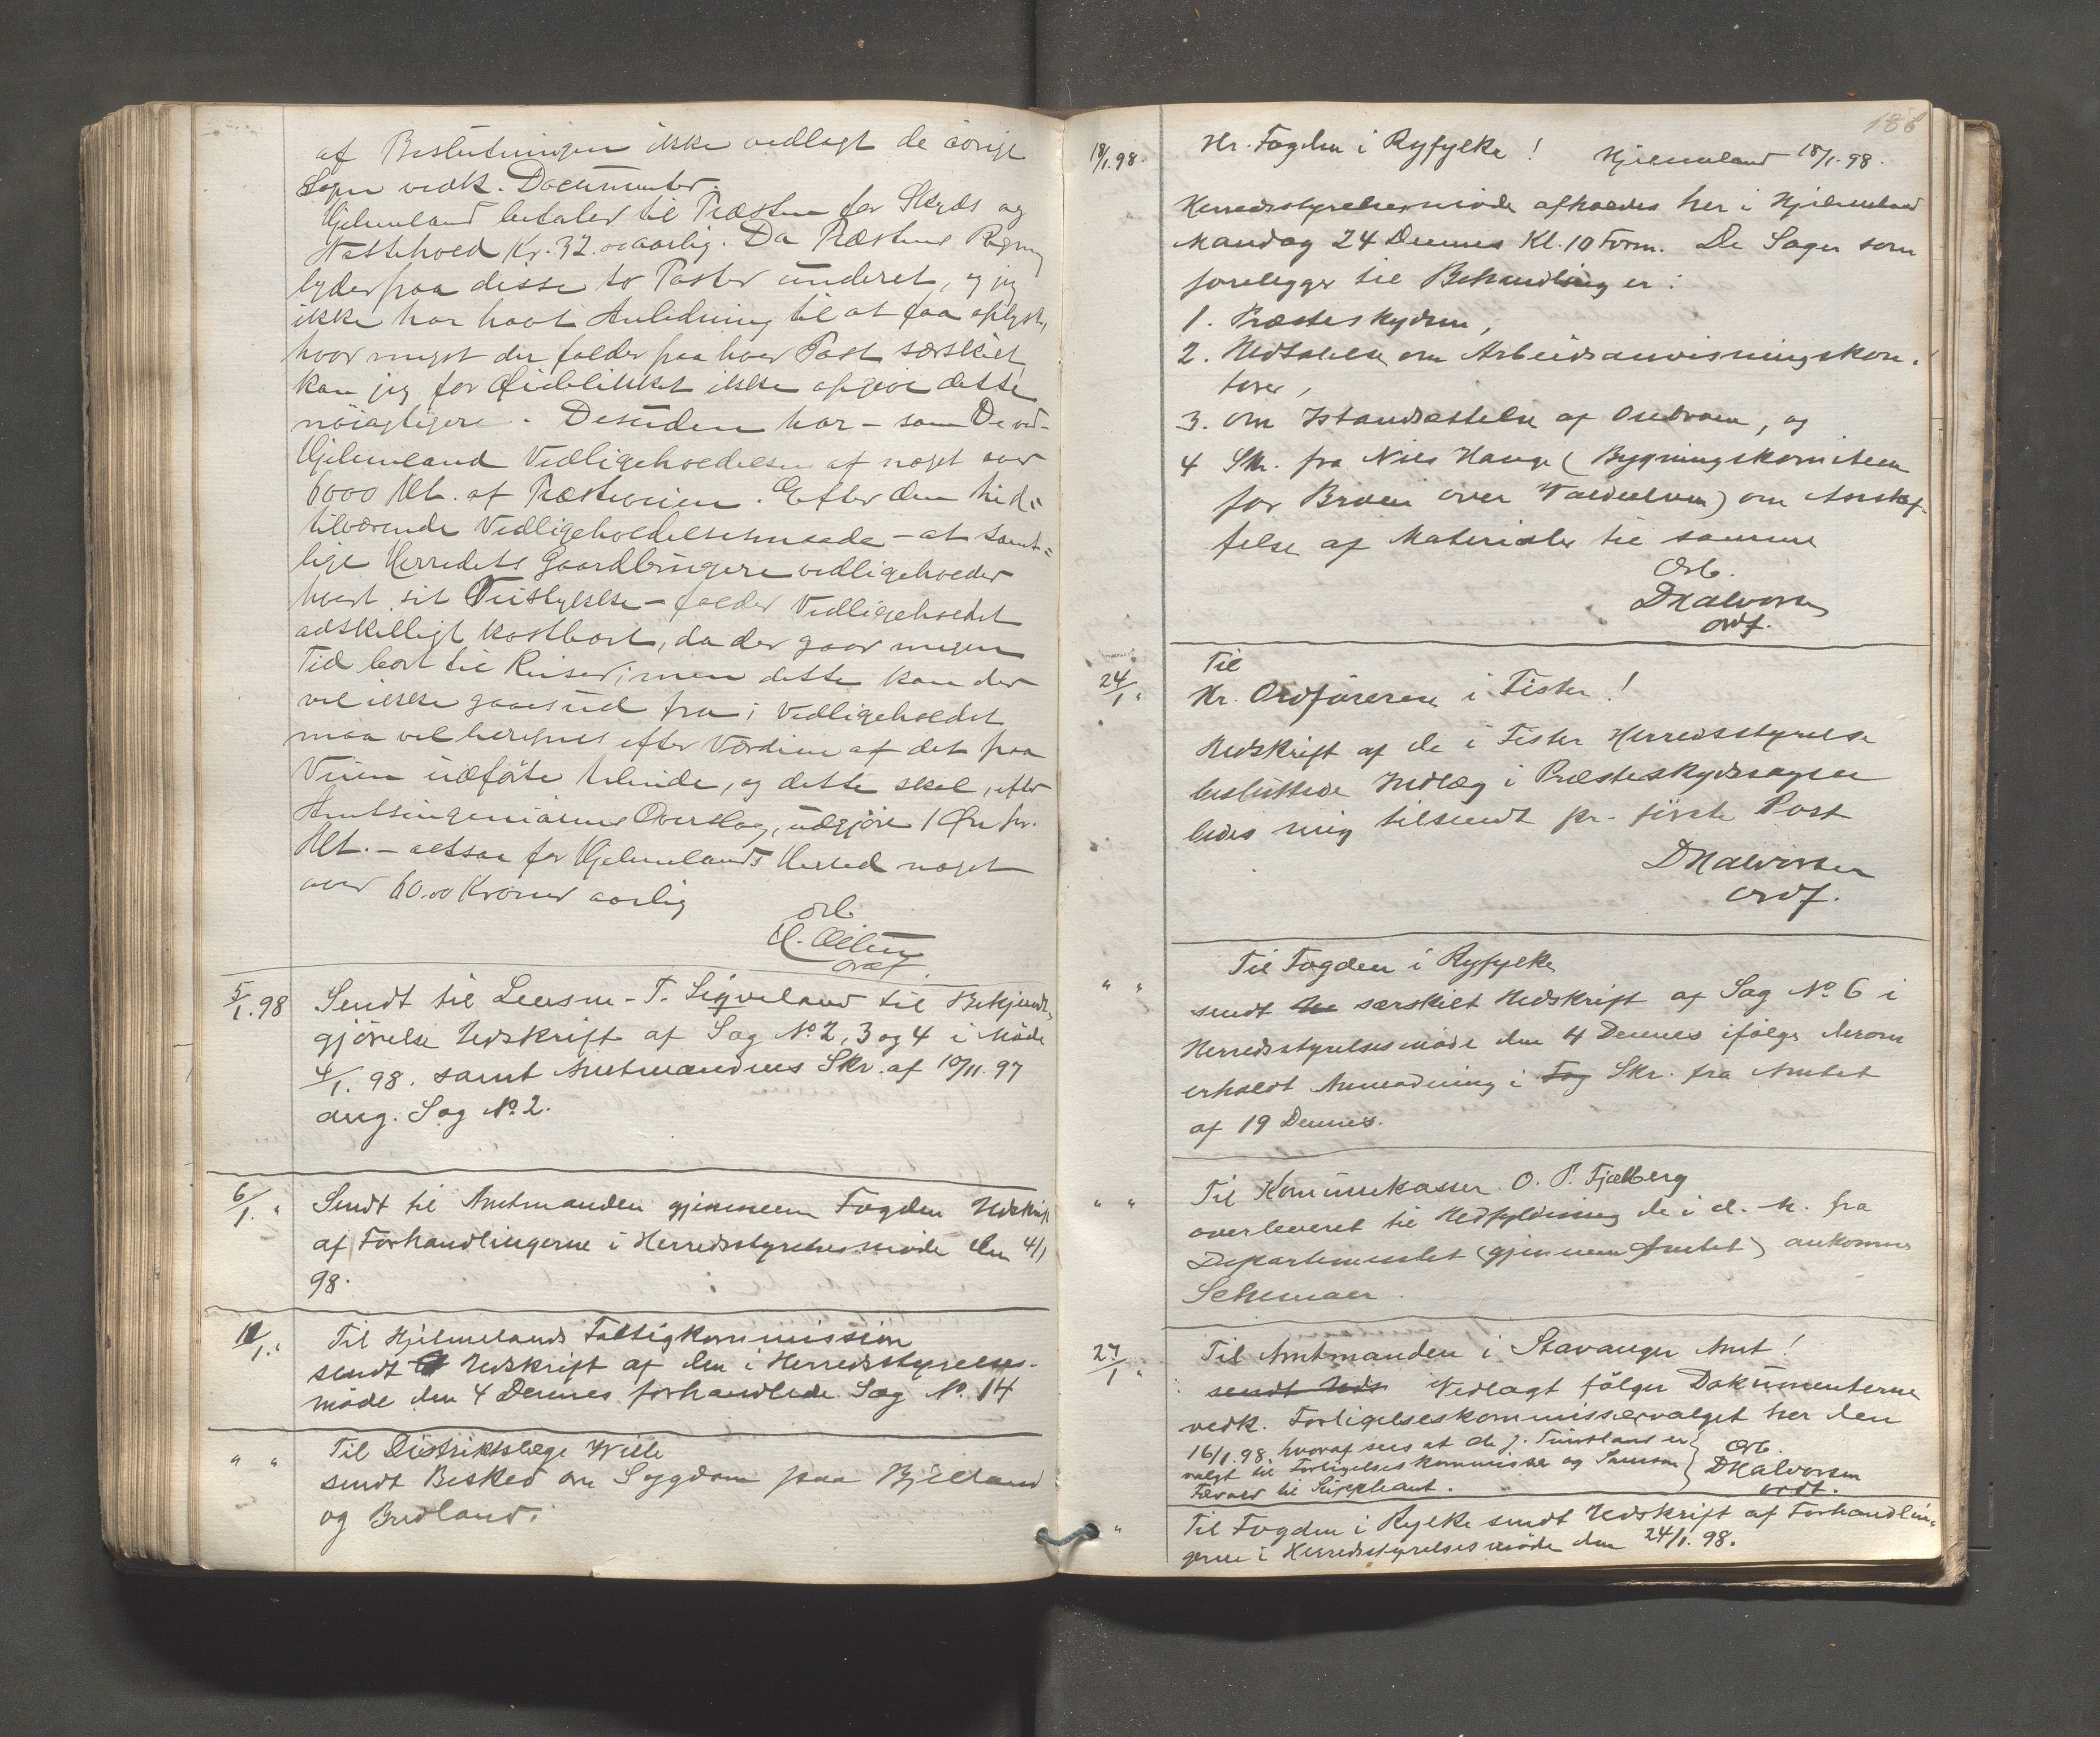 af Beslutningen ikke vedlagt de övrige
Sagen vedk. Documenter.
Hjelmeland betaler til Præsten for Skyds og
Nattehold Kr. 32.00 aarlig. Da Præstens Regning
lyder paa disse to Poster underet, og jeg
ikke har havt Anledning til at faa oplyst,
hvor meget der falder paa hver Post særskilt
kan jeg for Øieblikket ikke opgive dette
nöiagtigere. Desuden har – som De ved –
Hjelmeland Vedligeholdelsen af noget over
6000 Mt. af Præsteveien. Efter den hid-
tilværende Vedligeholdelsesmaade – at samt-
lige Herredets Gaardbrugere vedligeholder
hvert sit Veistykke – falder Vedligeholdet
adskilligt kostbart, da der gaar megen
Tid bort til Reiser; men dette kan der
vel ikke gaaes ud fra; Vedligeholdet
maa vel beregnes efter Værdien af det paa
Veien udförte Arbeide, og dette skal, efter
Amtsingeniörens Overslag, udgjöre 1 Øre pr.
Mt. – altsaa for Hjelmelands Herred noget
over 60.00 Kroner aarlig
Orb.
ordf.
5/1. 98 Sendt til Lensm. T. Sigveland til Bekjendt-
gjörelse Udskrift af Sag No. 2, 3 og 4 i Möde
4/1. 98. samt Amtmandens Skr. af 10/11. 97
ang. Sag No. 2.
6/1. " Sendt til Amtmanden gjennem Fogden Udskrift
af Forhandlingerne i Herredsstyrelsesmöde den 4/1
98.
11/1. " Til Hjelmelands Fattigkommission
sendt Udskrift af den i Herredsstyrelses-
möde den 4 Dennes forhandlede Sag No. 14
" " Til Distriktslæge Wille
sendt Besked om Sygdom paa Bjelland
og Bredland.
188
18/1. 98. Hr. Fogden i Ryfylke! Hjelmeland 18/1. 98.
Herredsstyrelsesmöde afholdes her i Hjelmeland
Mandag 24 Dennes Kl. 10 Form. De Sager som
forelegges til Behandling er:
1. Præsteskydsen,
2. Udtalelse om Arbeidsanvisningskon-
torer,
3. om Istandsættelse af Osebroen, og
4 Skr. fra Niels Hauge (Bygningskomiteen
for Broen over Vaulaelven) om Anskaf-
felse af Materialer til samme
Orb.
D Halvorsen
ordf.
24/1 " Til
Hr. Ordföreren i Fister!
Udskrift af de i Fister Herredsstyrelse
besluttede Indlæg i Præsteskydssagen
bedes mig tilsendt pr. förste Post
D Halvorsen
Ordf.
" " Til Fogden i Ryfylke
sendt særskilt Udskrift af Sag No. 6 i
Herredsstyrelsesmöde den 4 Dennes ifölge derom
erholdt Anmodning i Fog Skr. fra Amtet
af 19 Dennes.
" " Til Kommunekasser O. P. Fjelberg
overleveret til Udfyldning de i d. M. fra
Departementet (gjennem Amtet) ankomne
Schemaer.
27/1 " Til Amtmanden i Stavanger Amt!
sendt Uds. Vedlagt fölger Dokumenterne
vedk. Forligelseskommissærvalget her den
16/1. 98, hvoraf sees at de J. Tuntland er
valgt til Forligelseskommissær og Samson
til Suppleant.
Orb.
D Halvorsen
ordf.
" Til Fogden i Rylke sendt Udskrift af Forhandlin-
gerne i Herredsstyrelsesmöde den 24/1. 98.